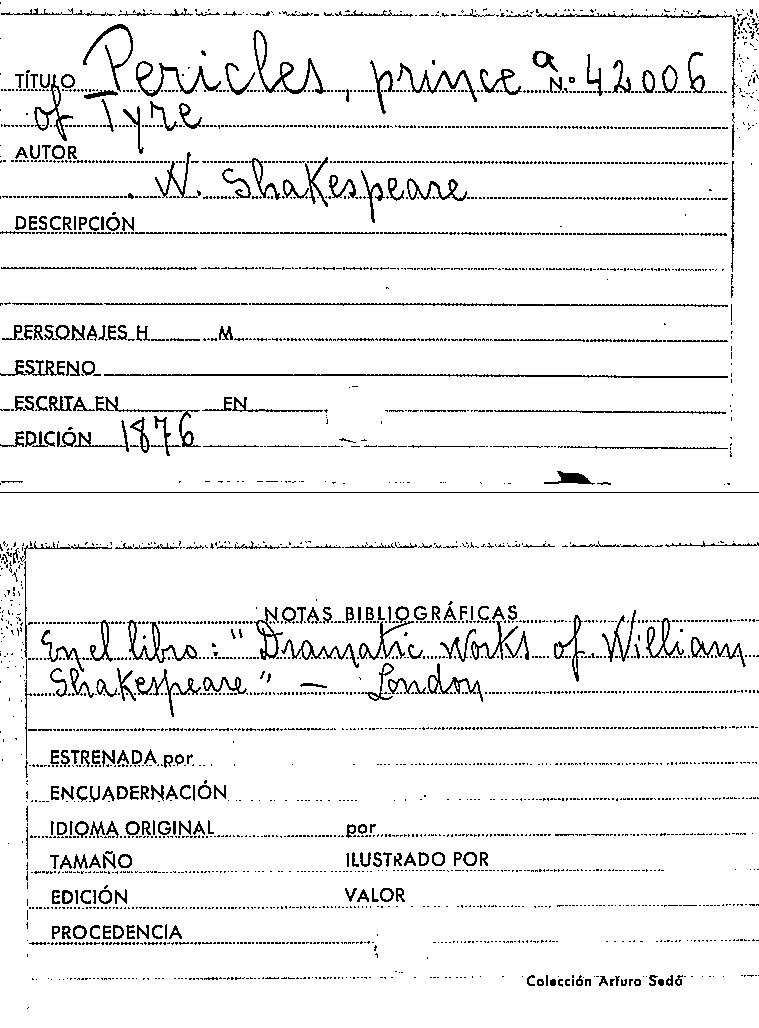 TÍTULO Pericles, prince a N.º 42006
of Tyre
AUTOR
W. Shakespeare
DESCRIPCIÓN
PERSONAJES H M
ESTRENO
ESCRITA EN EN
EDICIÓN 1876
NOTAS BIBLIOGRÁFICAS
En el libro: "Dramatic works of William
Shakespeare" - London
ESTRENADA por
ENCUADERNACIÓN
IDIOMA ORIGINAL por
TAMAÑO ILUSTRADO POR
EDICIÓN VALOR
PROCEDENCIA
Colección Arturo Sedó